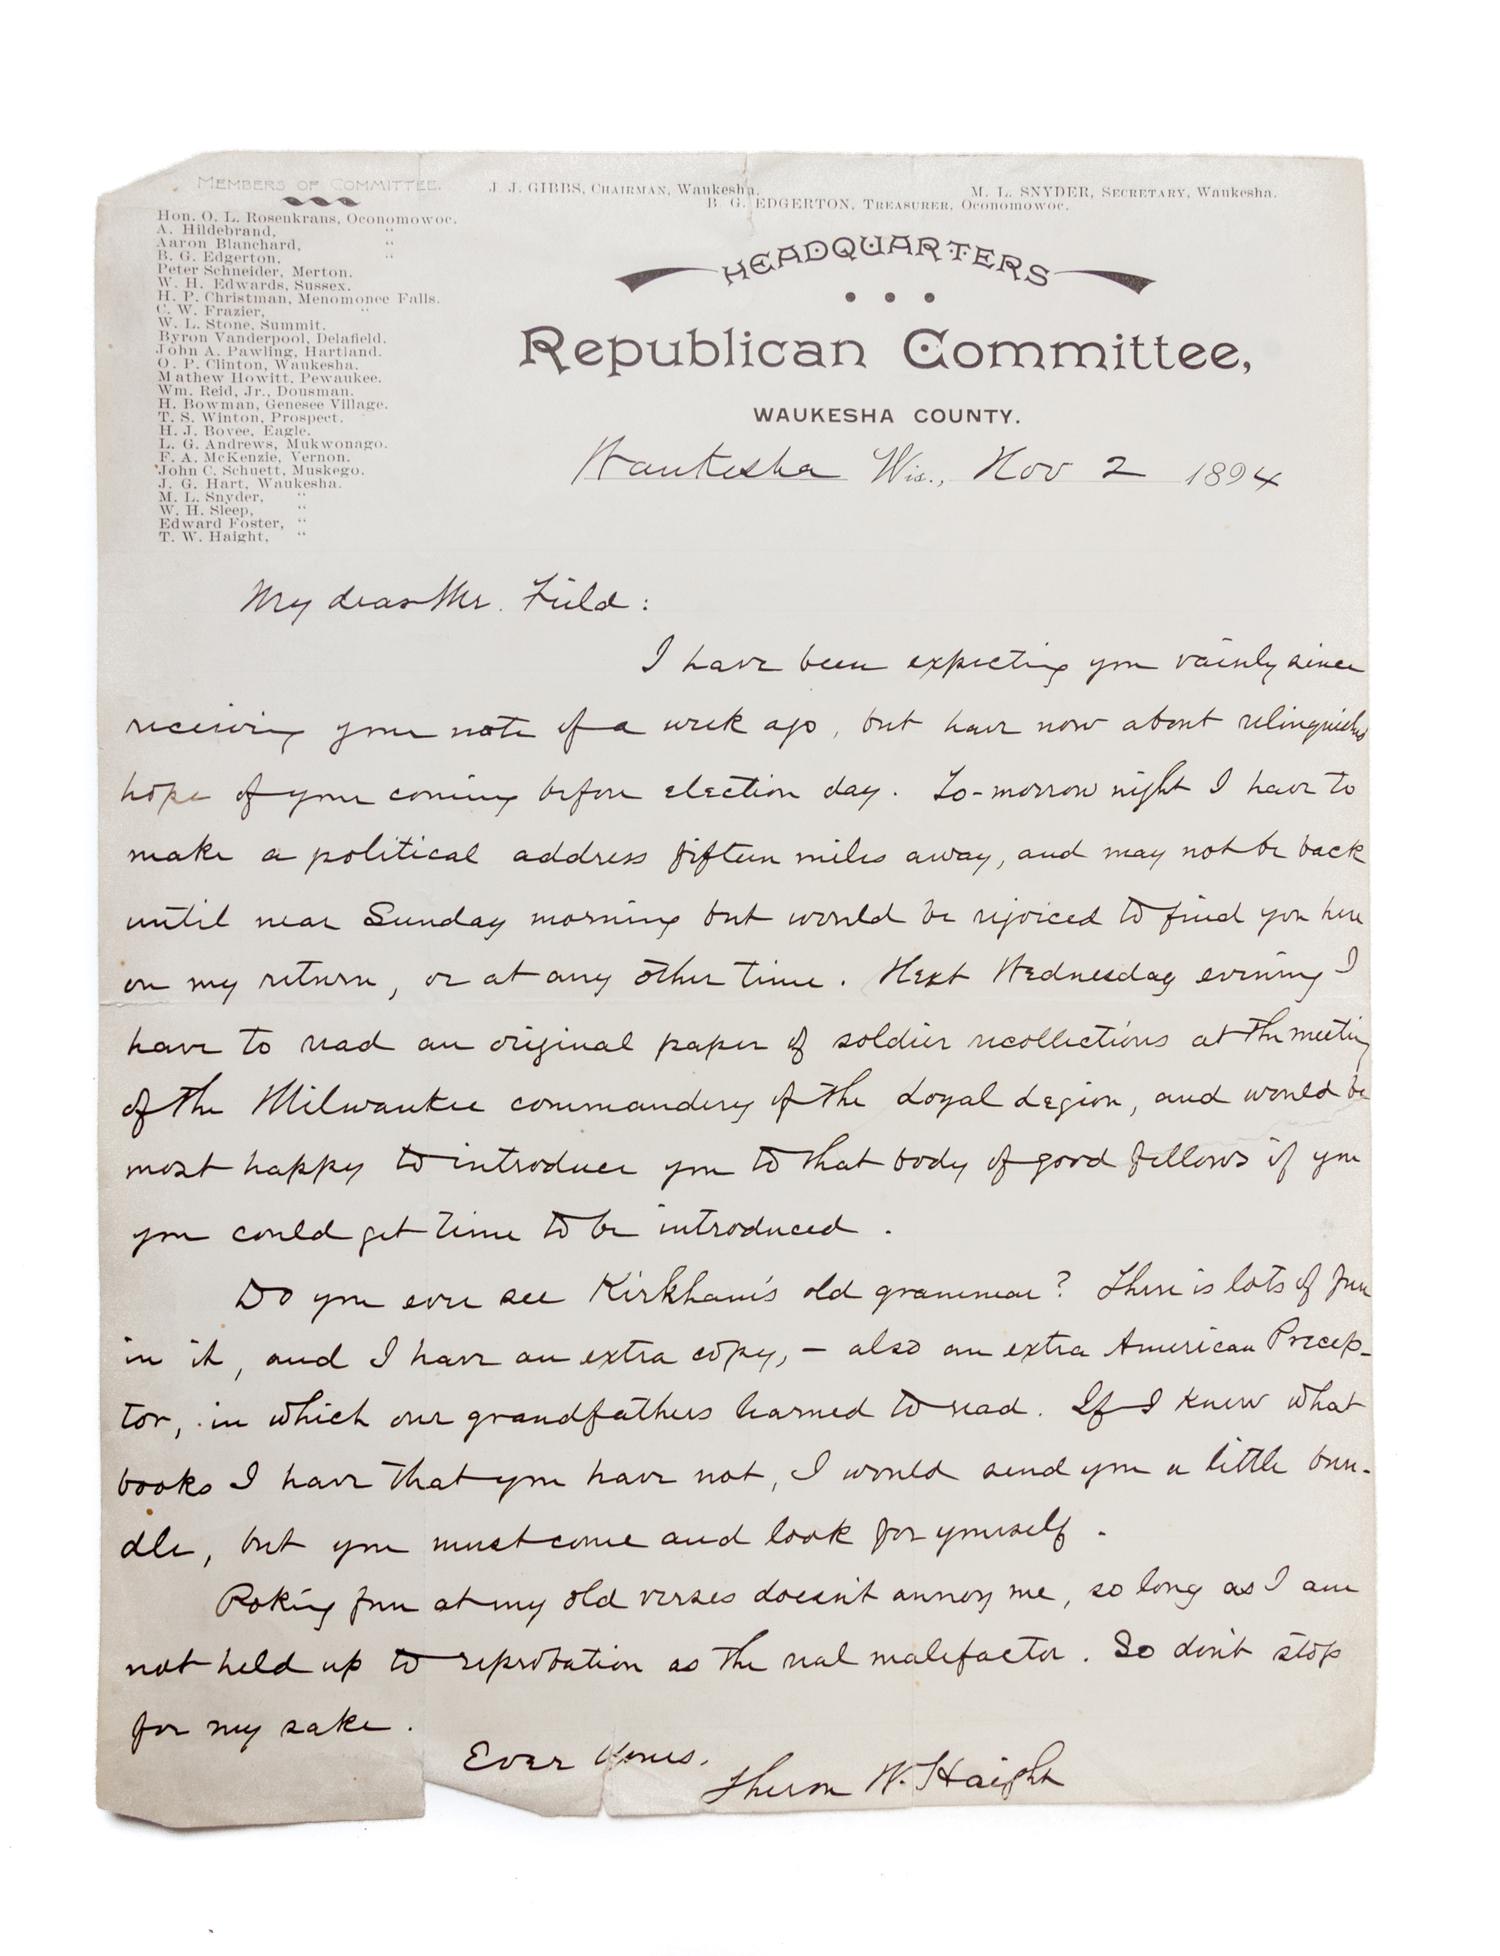 MEMBERS OF COMMITTEE.
Hon. O. L. Rosenkrans, Oconomowoc.
A. Hildebrand, "
Aaron Blanchard, "
B. G. Edgerton, "
Peter Schneider, Merton.
W. H. Edwards, Sussex.
H. P. Christman, Menomonee Falls.
C. W. Frazier, "
W. L. Stone, Summit.
Byron Vanderpool, Delafield.
John A. Pawling, Hartland.
O. P. Clinton, Waukesha.
Mathew Howitt, Pewaukee.
Wm. Reid, Jr., Dousman.
H. Bowman, Genesee Village.
T. S. Winton, Prospect.
H. J. Bovee, Eagle.
L. G. Andrews, Mukwonago.
F. A. McKenzie, Vernon.
John C. Schuett, Muskego.
J. G. Hart, Waukesha.
M. L. Snyder, "
W. H. Sleep, "
Edward Foster, "
T. W. Haight, "
J. J. GIBBS, CHAIRMAN, Waukesha.
M. L. SNYDER, SECRETARY, Waukesha.
B. G. EDGERTON, TREASURER, Oconomowoc.
HEADQUARTERS
Republican Committee,
WAUKESHA COUNTY.
Waukesha Wis., Nov 2 1894
My dear Mr. Field:
I have been expecting you vainly since
receiving your note of a week ago, but have now about relinquished
hope of your coming before election day. To-morrow night I have to
make a political address fifteen miles away, and may not be back
until near Sunday morning but would be rejoiced to find you here
on my return, or at any other time. Next Wednesday evening I
have to read an original paper of soldier recollections at the meeting
of the Milwaukee commandery of the Loyal Legion, and would be
most happy to introduce you to that body of good fellows if you
you could get time to be introduced.
Do you ever see Kirkham's old grammar? There is lots of fun
in it, and I have an extra copy, - also an extra American Precep-
tor, in which our grandfathers learned to read. If I knew what
books I have that you have not, I would send you a little bun-
dle, but you must come and look for yourself.
Poking fun at my old verses doesn't annoy me, so long as I am
not held up to reprobation as the real malefactor. So don't stop
for my sake.
Ever Yours,
Theron W. Haight